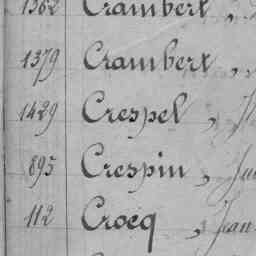 1362 Crambert,
1379 Crambert,
1429 Crespel,
895 Crespin,
112 Crocq, Jean